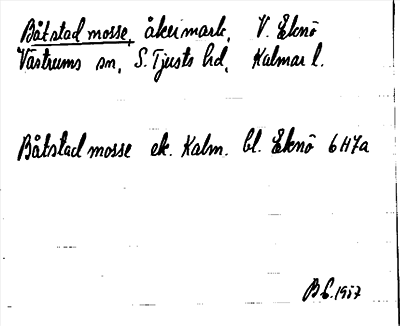 Båtstad mosse, åkermark, V. Eknö
Västrums sn, S. Tjusts hd, Kalmar l.
Båtstad mosse ek. Kalm. bl. Eknö 6H7a
B.L. 1957